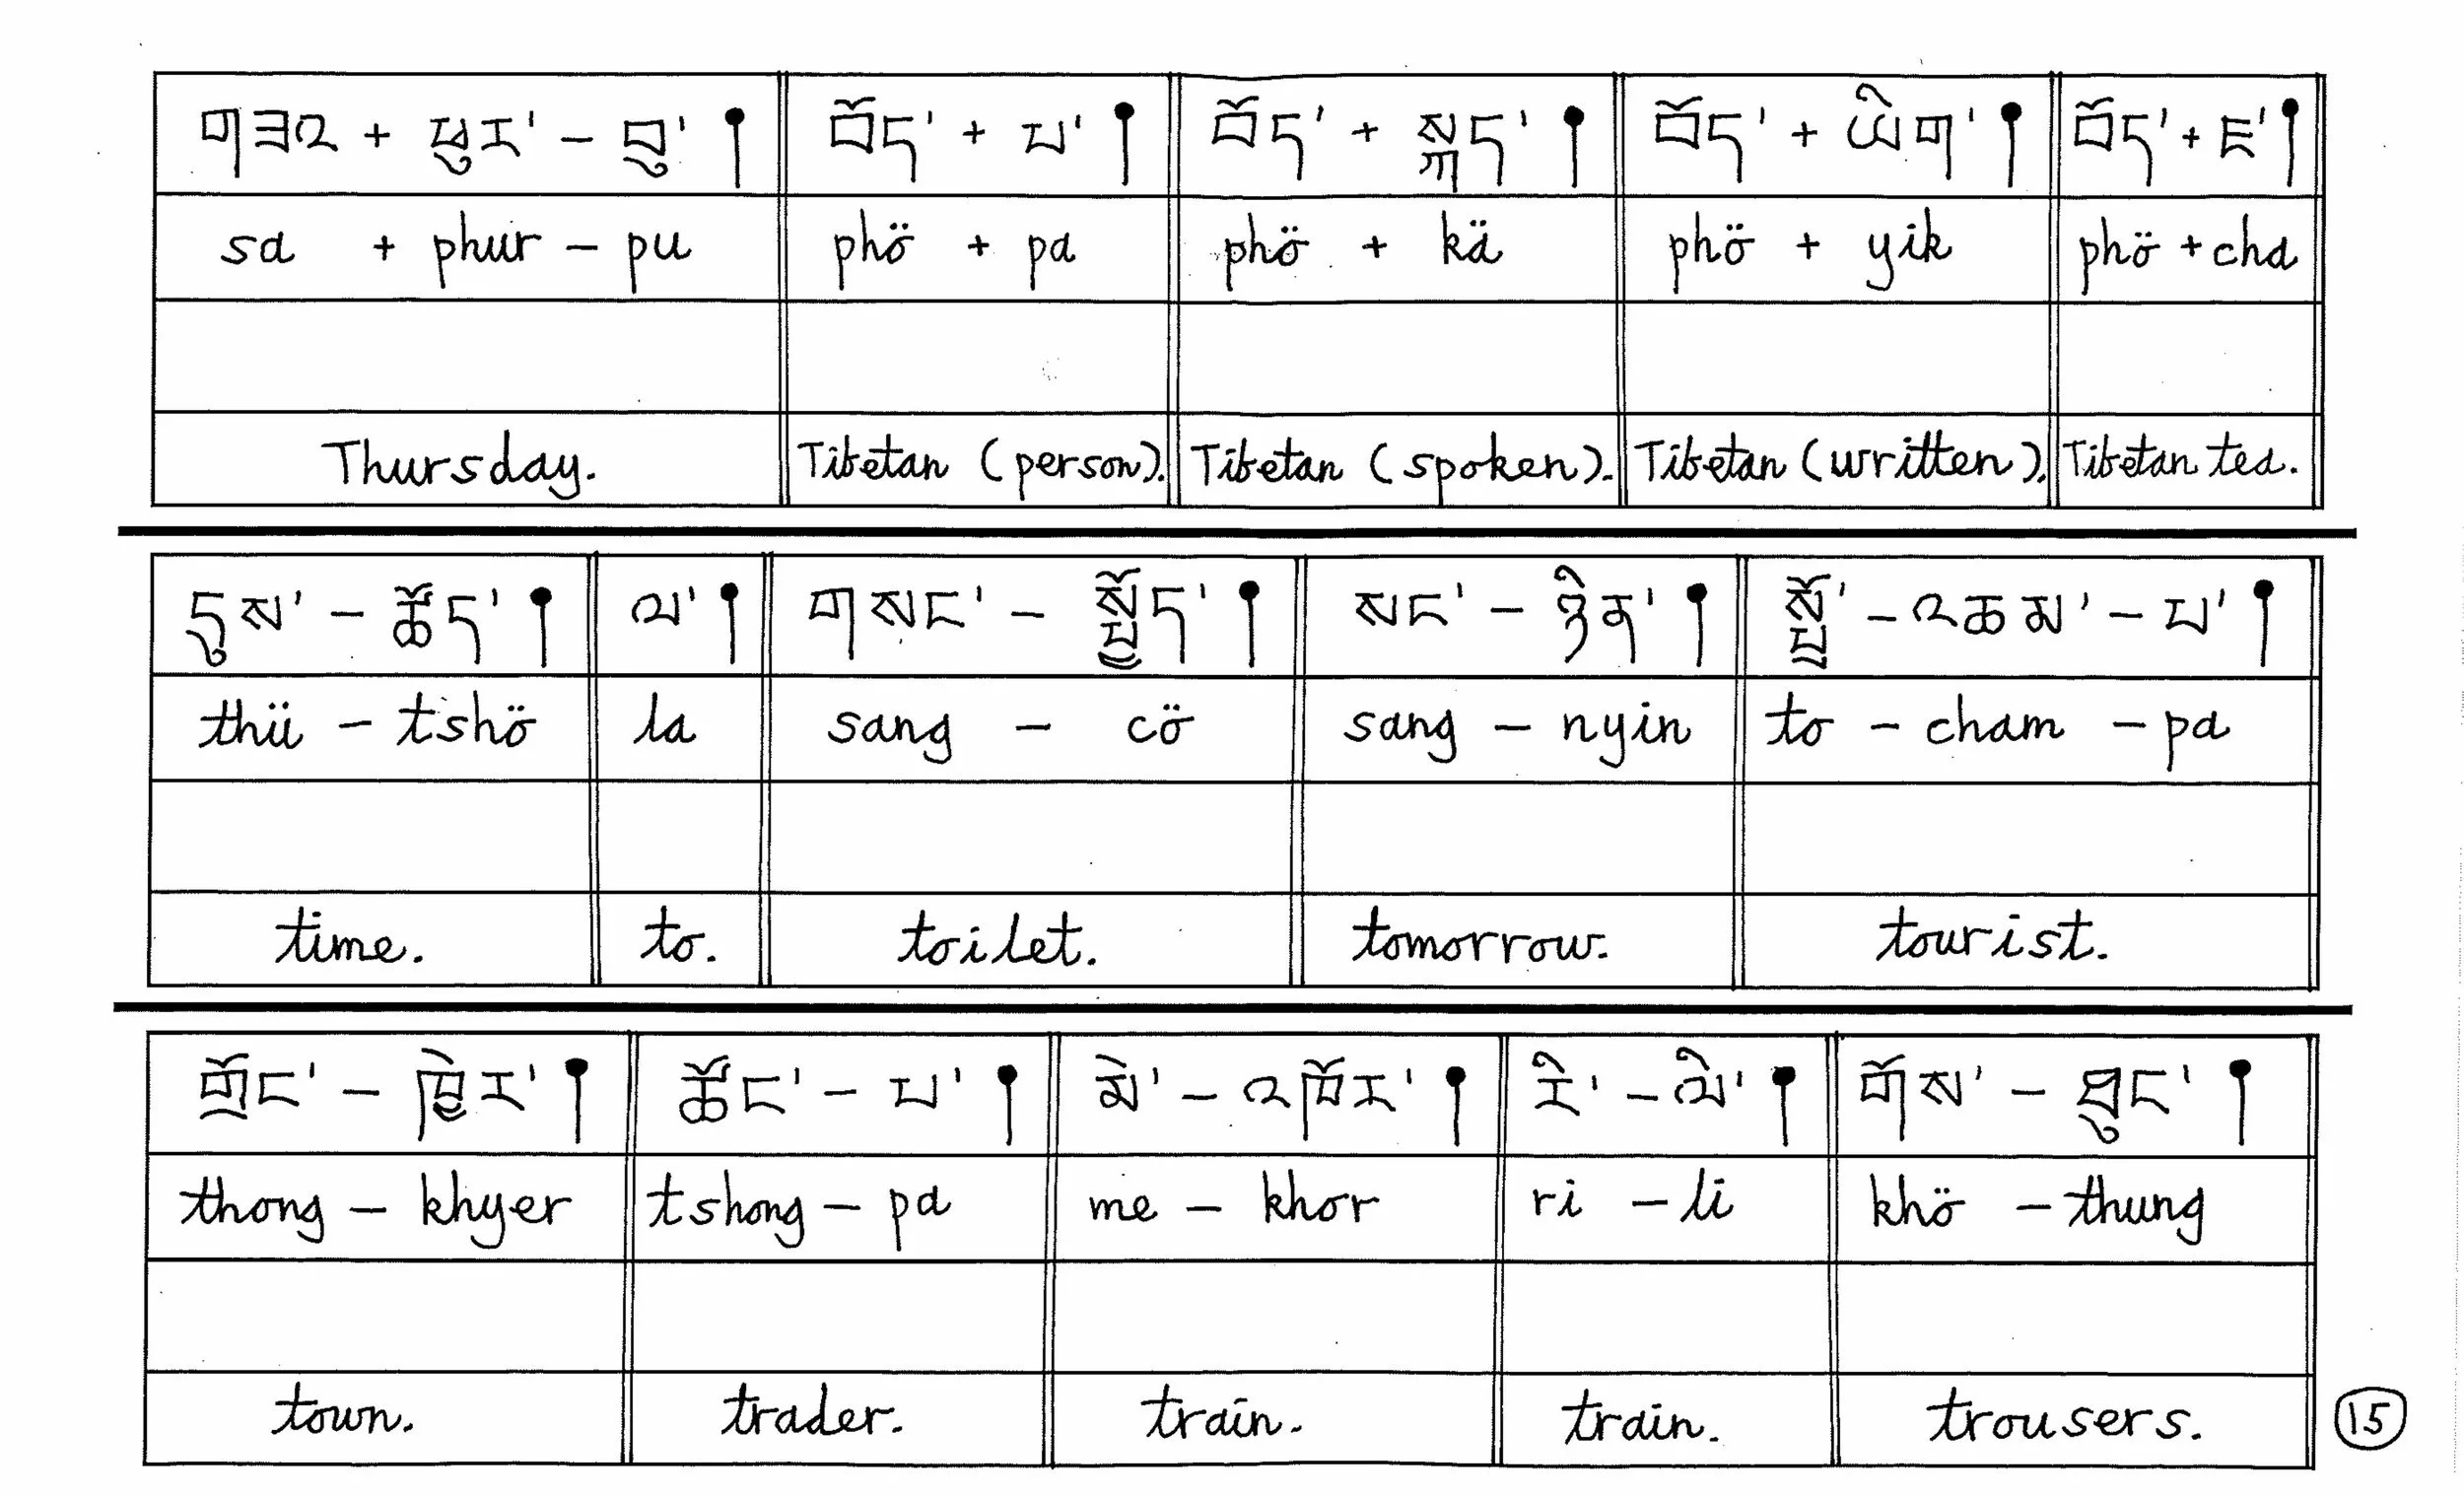 གཟའ + ཕུར་ – བུ་ ། བོད་ + པ་ ། བོད་ + སྐད་ ། བོད་ + ཡིག་ ། བོད་ + ཇ་ །
sa + phur – pu phö + pa phö + kä phö + yik phö + cha
Thursday. Tibetan (person). Tibetan (spoken). Tibetan (written). Tibetan tea.
དུས་ – ཚོད་ ། ལ་ ། གསང་ – སྤྱོད་ ། སང་ – ཉིན་ ། སྤྲོ་ – འཆམ་ – པ་ །
thü – tshö la sang – cö sang – nyin to – cham – pa
time. to. toilet. tomorrow. tourist.
གྲོང་ – ཁྱེར་ ། ཚོང་ – པ་ ། མེ་ – འཁོར་ ། རི་ – ལི་ ། གོས་ – ཐུང་ །
thong – khyer tshong – pa me – khor ri – li khö – thung
town. trader. train. train. trousers.
15